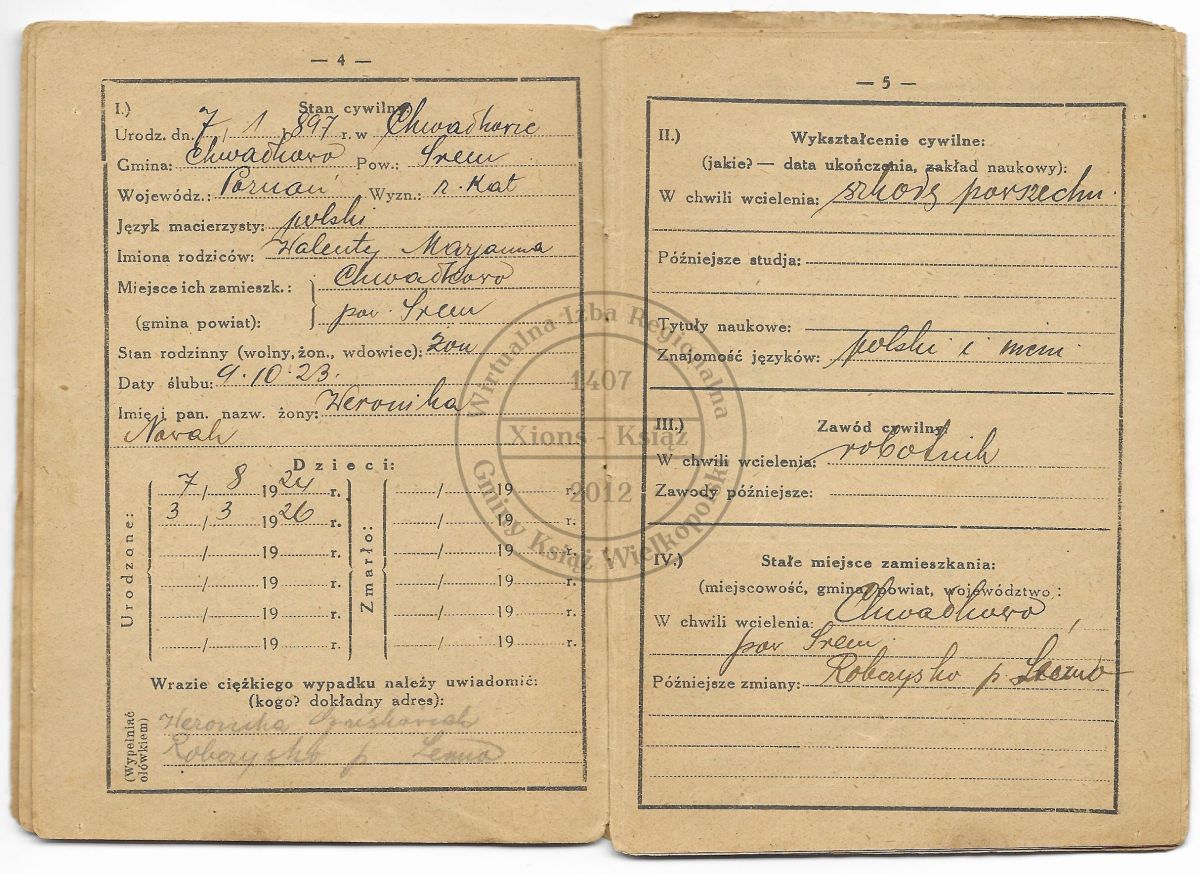 — 4 —
I.) Stan cywilny:
Urodz. dn. 7 / 1 897 r. w Chwałkowie
Gmina: Chwałkowo Pow.: Śrem
Wojewódz.: Poznań Wyzn.: r. Kat
Język macierzysty: polski
Imiona rodziców: Walenty Marjanna
Miejsce ich zamieszk.: Chwałkowo
(gmina powiat): pow. Śrem
Stan rodzinny (wolny, żon., wdowiec): żon
Daty ślubu: 9. 10 23.
Imię i pan. nazw. żony: Weronika
Nowak
Dzieci:
Urodzone:
7 / 8 1924 r.
3 / 3 1926 r.
/ 19 r.
/ 19 r.
/ 19 r.
/ 19 r.
Zmarło:
/ 19 r.
/ 19 r.
/ 19 r.
/ 19 r.
/ 19 r.
/ 19 r.
Wrazie ciężkiego wypadku należy uwiadomić:
(kogo? dokładny adres):
(Wypełniać ołówkiem)
Weronika
Robczysko p.
— 5 —
II.) Wykształcenie cywilne:
(jakie? — data ukończenia, zakład naukowy):
W chwili wcielenia: szkołę powszechn.
Późniejsze studja:
Tytuły naukowe:
Znajomość języków: polski i niem
III.) Zawód cywilny:
W chwili wcielenia: robotnik
Zawody późniejsze:
IV.) Stałe miejsce zamieszkania:
(miejscowość, gmina, powiat, województwo:
W chwili wcielenia: Chwałkowo,
pow Śrem
Późniejsze zmiany: Robczysko p.
Wirtualna Izba Regionalna
1407
Xions - Książ
2012
Gminy Książ Wielkopolski